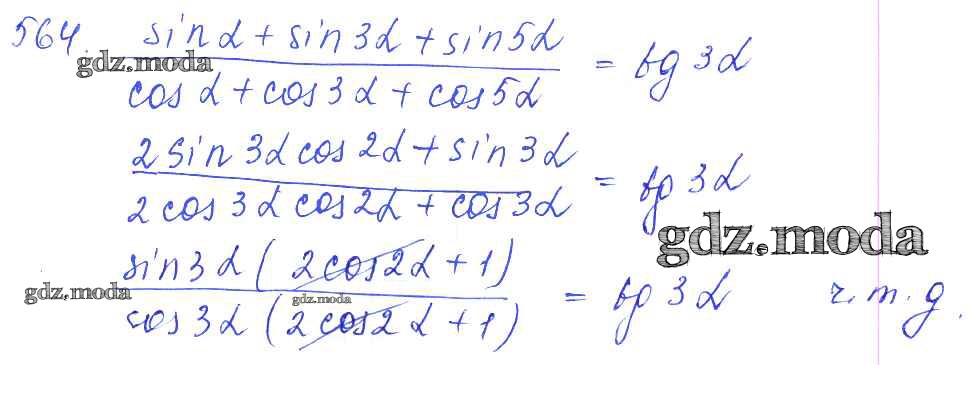 564. (sin α + sin 3α + sin 5α) / (cos α + cos 3α + cos 5α) = tg 3α
gdz.moda
(2 sin 3α cos 2α + sin 3α) / (2 cos 3α cos 2α + cos 3α) = tg 3α
gdz.moda
(sin 3α (2 cos 2α + 1)) / (cos 3α (2 cos 2α + 1)) = tg 3α ч.т.д.
gdz.moda
gdz.moda